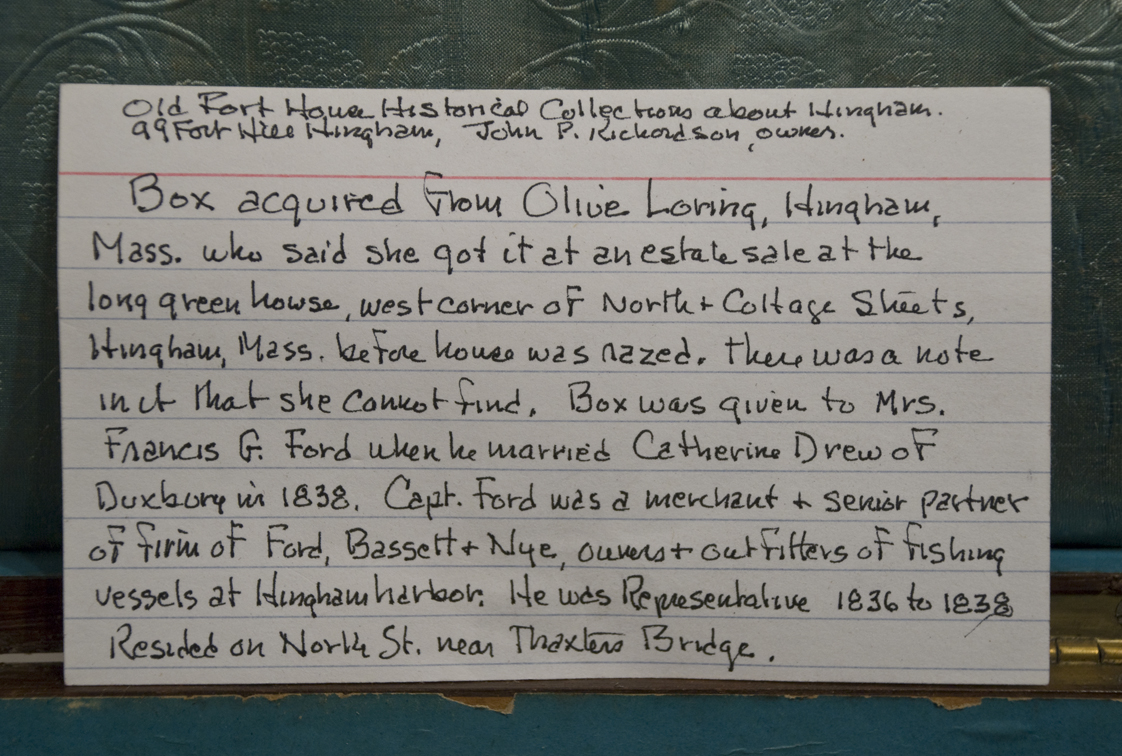 Old Fort House Historical Collections about Hingham.
99 Fort Hill Hingham, John P. Richardson, owner.
Box acquired from Olive Loring, Hingham,
Mass. who said she got it at an estate sale at the
long green house, west corner of North + Cottage Streets,
Hingham, Mass. before house was razed. There was a note
in it that she cannot find. Box was given to Mrs.
Francis G. Ford when he married Catherine Drew of
Duxbury in 1838. Capt. Ford was a merchant + senior partner
of firm of Ford, Bassett + Nye, owners + outfitters of fishing
vessels at Hingham harbor. He was Representative 1836 to 1838
Resided on North St. near Thaxters Bridge.